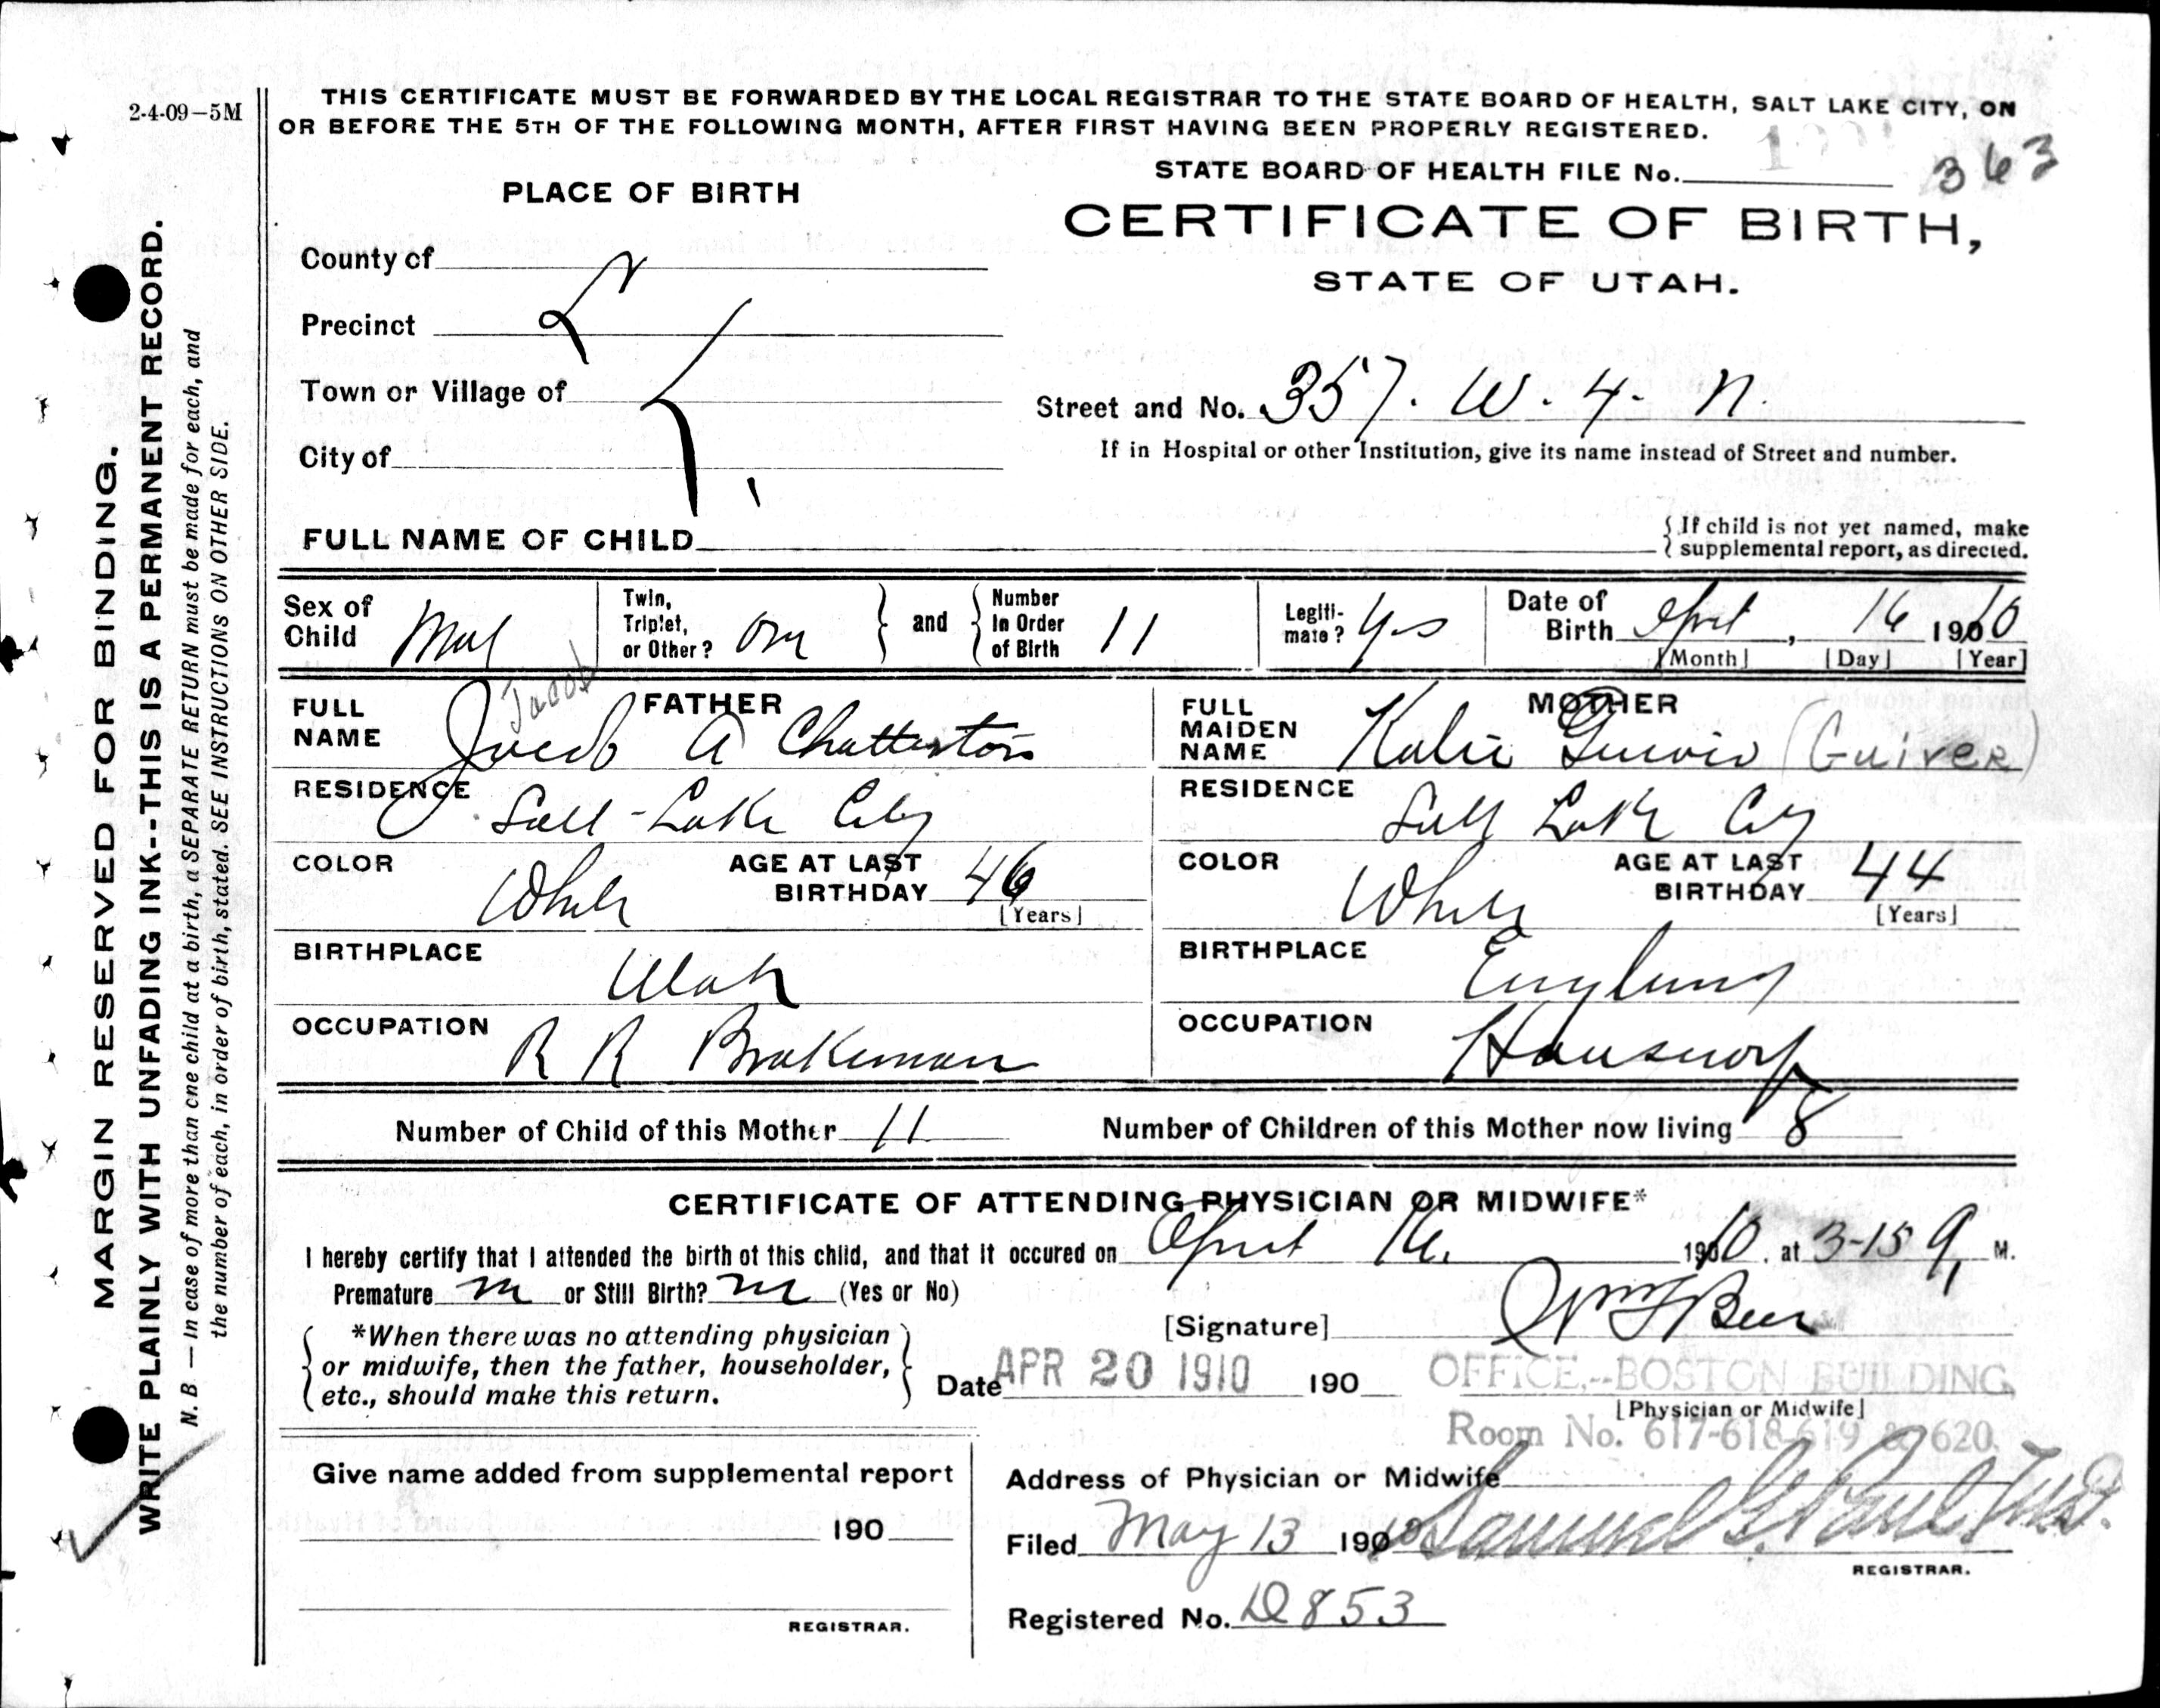 2-4-09-5M
THIS CERTIFICATE MUST BE FORWARDED BY THE LOCAL REGISTRAR TO THE STATE BOARD OF HEALTH, SALT LAKE CITY, ON
OR BEFORE THE 5TH OF THE FOLLOWING MONTH, AFTER FIRST HAVING BEEN PROPERLY REGISTERED.
STATE BOARD OF HEALTH FILE No. 363
PLACE OF BIRTH
CERTIFICATE OF BIRTH,
STATE OF UTAH.
County of
Precinct
Town or Village of
City of
Street and No. 357. W. 4. N.
If in Hospital or other Institution, give its name instead of Street and number.
FULL NAME OF CHILD
{If child is not yet named, make
supplemental report, as directed.
Sex of Child Mal
Twin, Triplet, or Other? One
and
Number In Order of Birth 11
Legitimate? Yes
Date of Birth April, 16 1910
[Month] [Day] [Year]
FATHER
FULL NAME Jacob A Chatterton
Jacob
RESIDENCE Salt-Lake City
COLOR White
AGE AT LAST BIRTHDAY 46
[Years]
BIRTHPLACE Utah
OCCUPATION R R Brakeman
MOTHER
FULL MAIDEN NAME Katie (Guiver)
RESIDENCE Salt Lake City
COLOR White
AGE AT LAST BIRTHDAY 44
[Years]
BIRTHPLACE England
OCCUPATION Housewife
Number of Child of this Mother 11
Number of Children of this Mother now living 8
CERTIFICATE OF ATTENDING PHYSICIAN OR MIDWIFE*
I hereby certify that I attended the birth of this child, and that it occured on April 16. 1910. at 3-15 a, M.
Premature no or Still Birth? no (Yes or No)
*When there was no attending physician
or midwife, then the father, householder,
etc., should make this return.
[Signature] Wm F Beer
Date APR 20 1910 190
OFFICE.--BOSTON BUILDING,
[Physician or Midwife]
Room No. 617-618-619 & 620.
Give name added from supplemental report
190
REGISTRAR.
Address of Physician or Midwife
Filed May 13 1910 Samuel G. Paul M.D.
REGISTRAR.
Registered No. D853
MARGIN RESERVED FOR BINDING.
WRITE PLAINLY WITH UNFADING INK--THIS IS A PERMANENT RECORD.
N. B. — In case of more than one child at a birth, a SEPARATE RETURN must be made for each, and
the number of each, in order of birth, stated. SEE INSTRUCTIONS ON OTHER SIDE.